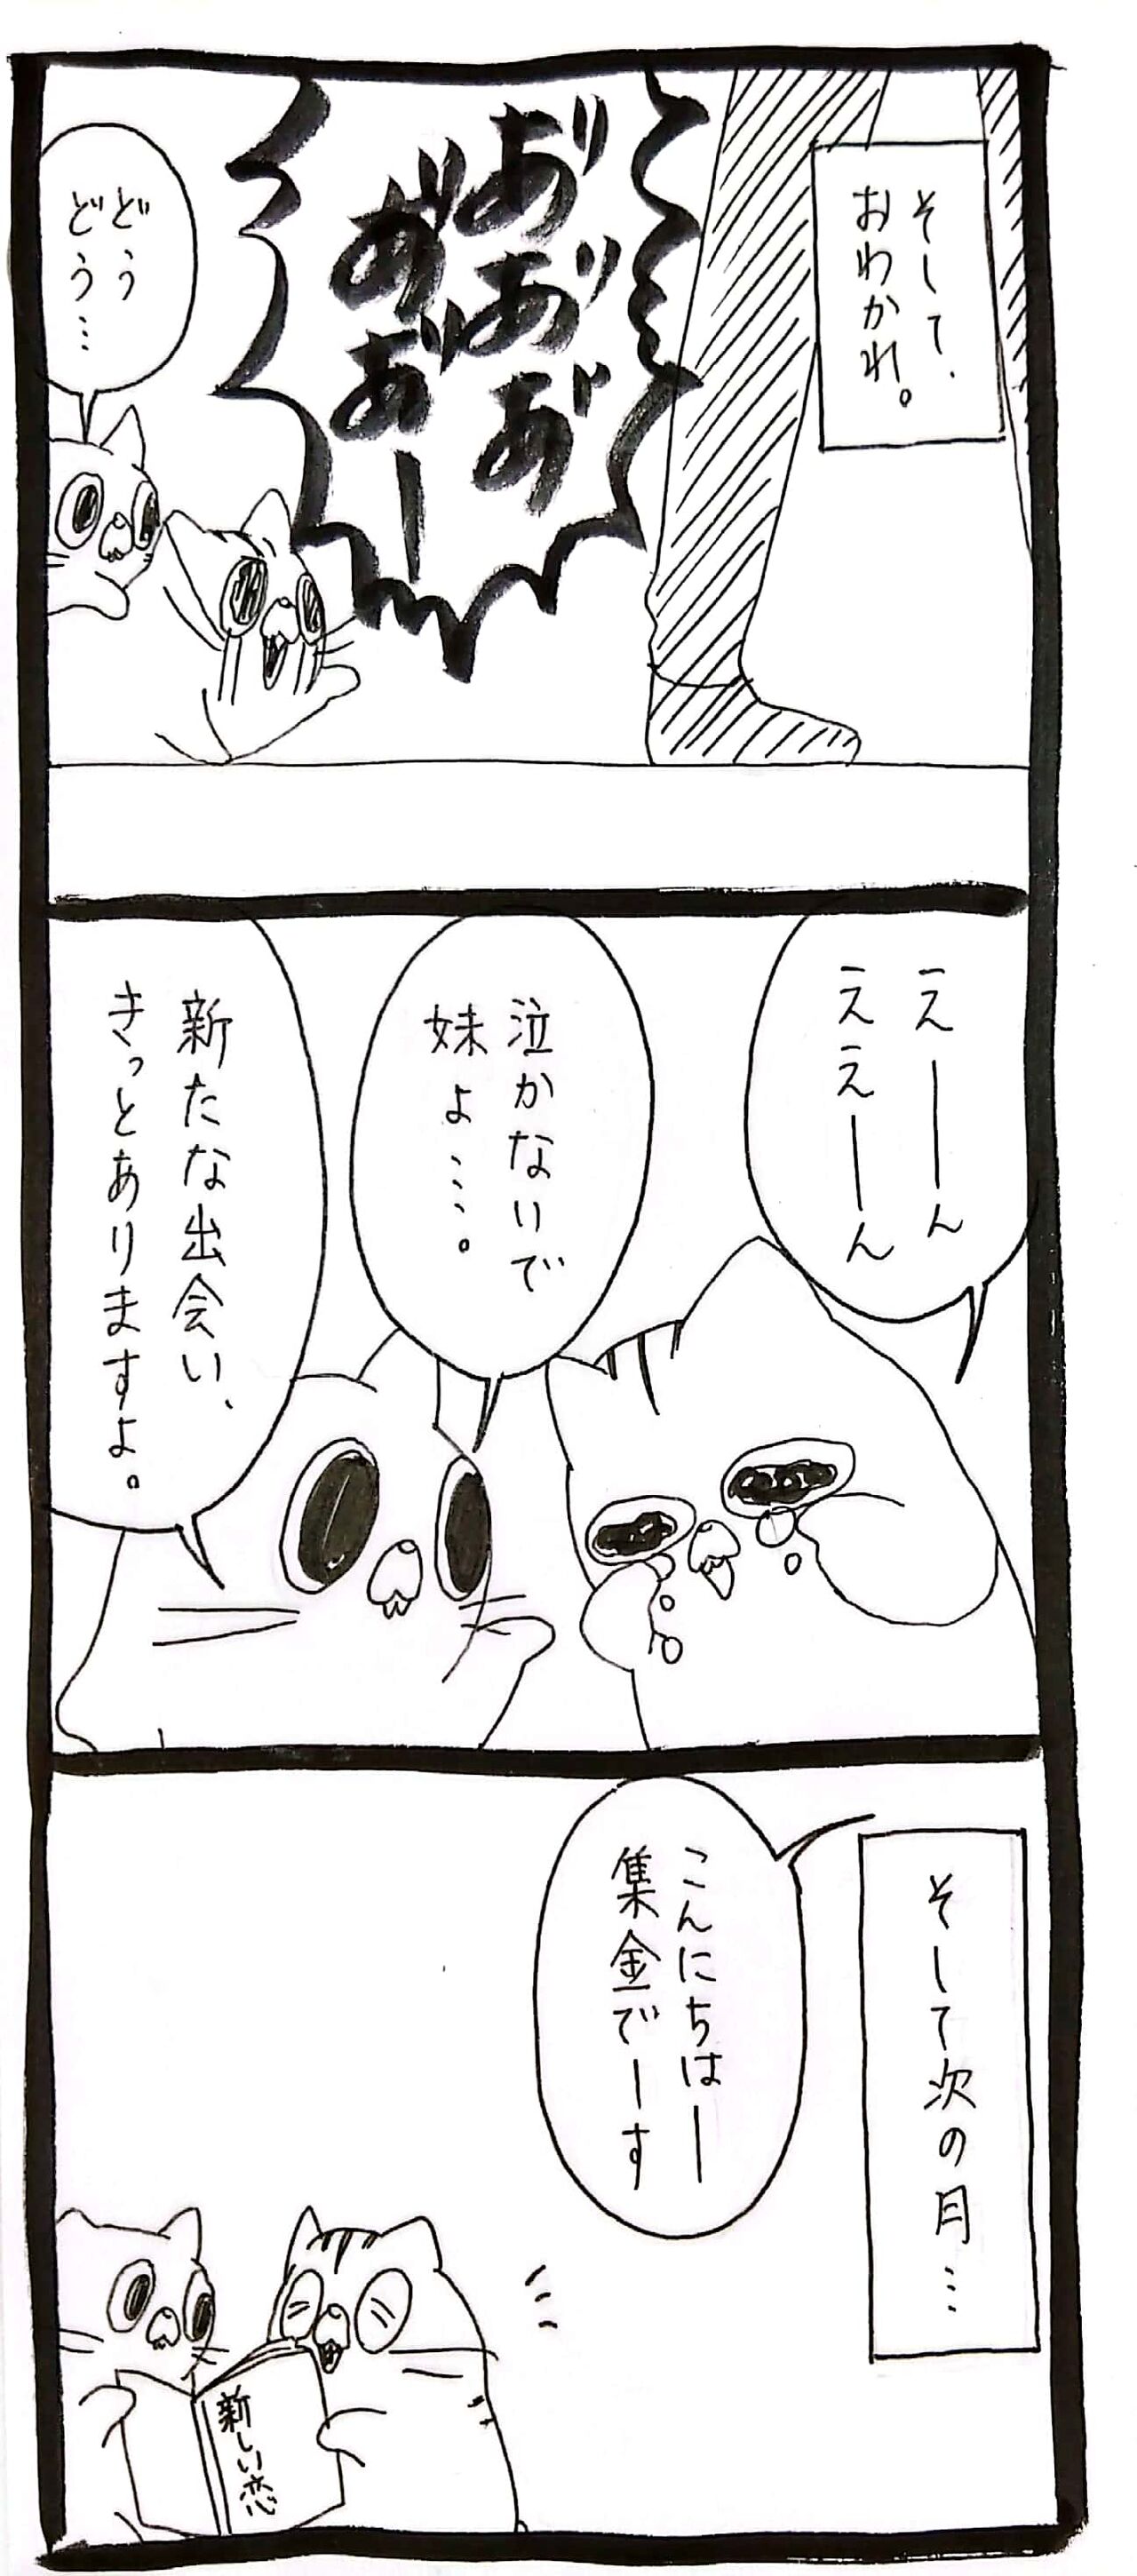 そして、
おわかれ。
あ゙あ゙あ゙
あ゙あ゙ー
どう
どう…
えーーん
ええーーん
泣かないで
妹よ……。
新たな出会い、
きっとありますよ。
そして次の月…
こんにちはー
集金でーす
新しい恋